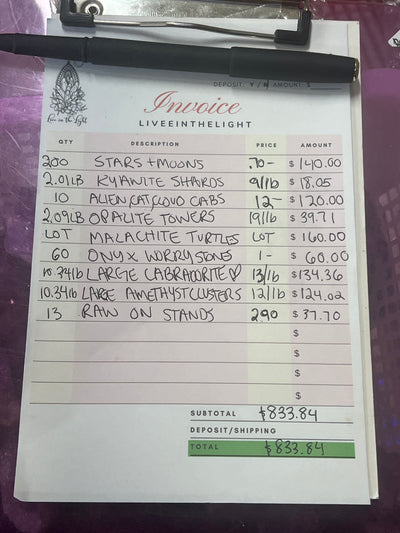 Live in the Light
DEPOSIT: Y / N AMOUNT $
Invoice
LIVEEINTHELIGHT
QTY DESCRIPTION PRICE AMOUNT
200 STARS + MOONS .70- $ 140.00
2.01LB KYANITE SHARDS 9/lb $ 18.05
10 ALIEN/CAT/CLOUD CABS 12- $ 120.00
2.09LB OPALITE TOWERS 19/lb $ 39.71
LOT MALACHITE TURTLES LOT $ 160.00
60 ONYX WORRY STONES 1- $ 60.00
10.34lb LARGE LABRADORITE ♡ 13/lb $134.36
10.34lb LARGE AMETHYST CLUSTERS 12/lb $124.02
13 RAW ON STANDS 2.90 $ 37.70
$
$
$
$
SUBTOTAL $833.84
DEPOSIT/SHIPPING
TOTAL $833.84